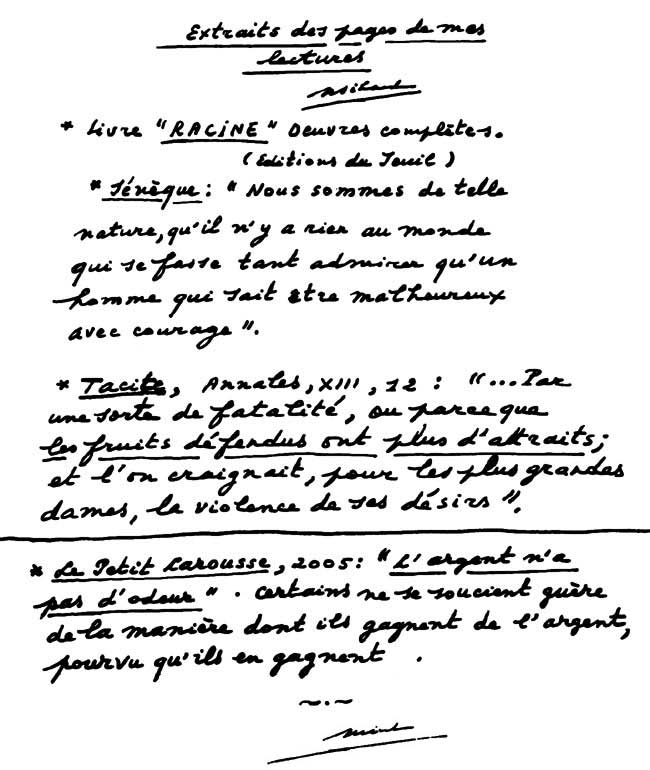 Extraits des pages de mes
lectures
* Livre "RACINE" Oeuvres complètes.
(Editions du Seuil)
* Sénèque : "Nous sommes de telle
nature, qu'il n'y a rien au monde
qui se fasse tant admirer qu'un
homme qui sait être malheureux
avec courage".
* Tacite, Annales, XIII, 12 : "...Par
une sorte de fatalité, ou parce que
les fruits défendus ont plus d'attraits;
et l'on craignait, pour les plus grandes
dames, la violence de ses désirs".
* Le Petit Larousse, 2005: "L'argent n'a
pas d'odeur". Certains ne se soucient guère
de la manière dont ils gagnent de l'argent,
pourvu qu'ils en gagnent .